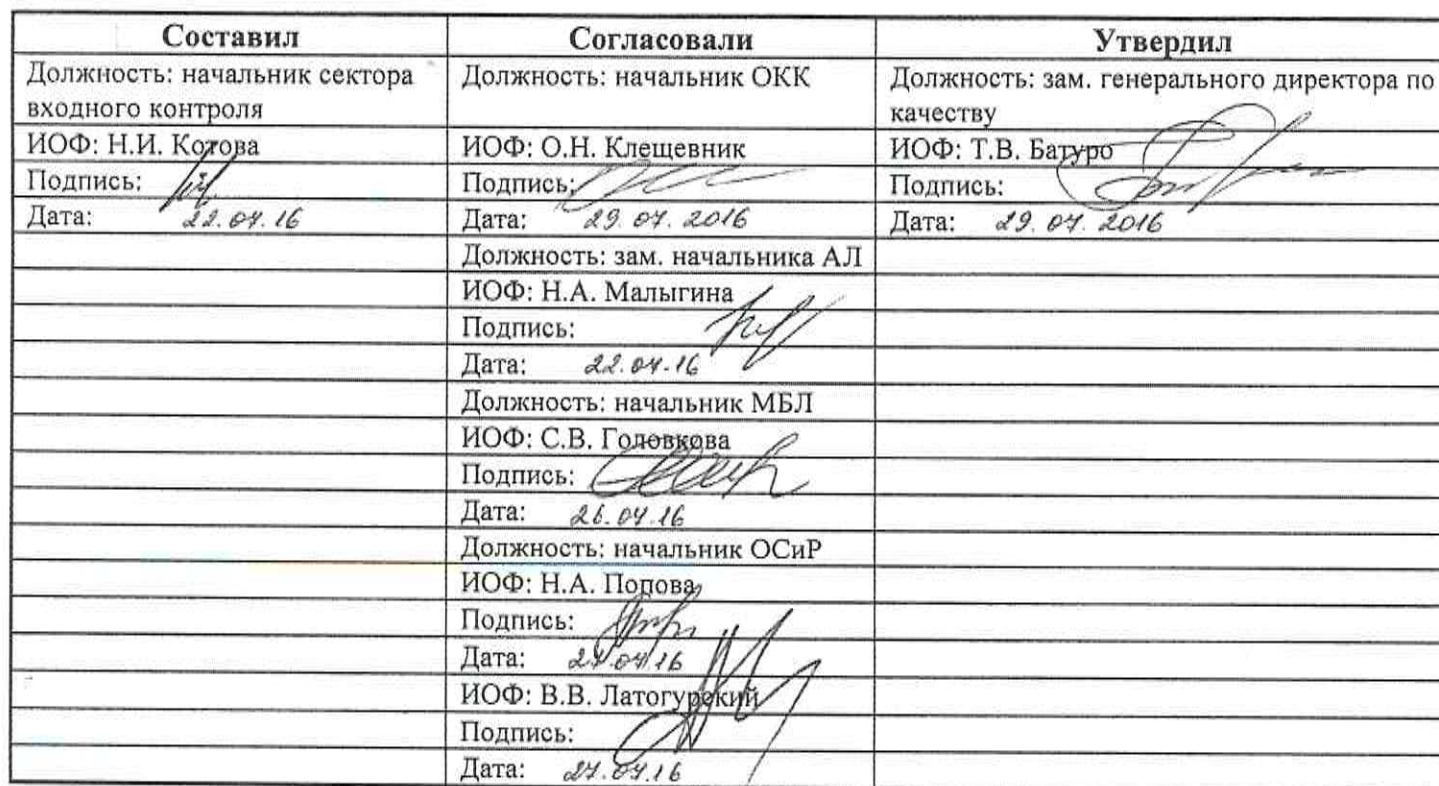 Составил Согласовали Утвердил
Должность: начальник сектора входного контроля
Должность: начальник ОКК
Должность: зам. генерального директора по качеству
ИОФ: Н.И. Котова ИОФ: О.Н. Клещевник ИОФ: Т.В. Батуро
Подпись: Подпись: Подпись:
Дата: 22.07.16 Дата: 29.07.2016 Дата: 29.07.2016
Должность: зам. начальника АЛ
ИОФ: Н.А. Малыгина
Подпись:
Дата: 22.07.16
Должность: начальник МБЛ
ИОФ: С.В. Головкова
Подпись:
Дата: 26.07.16
Должность: начальник ОСиР
ИОФ: Н.А. Попова
Подпись:
Дата: 27.07.16
ИОФ: В.В. Латогурский
Подпись:
Дата: 27.07.16